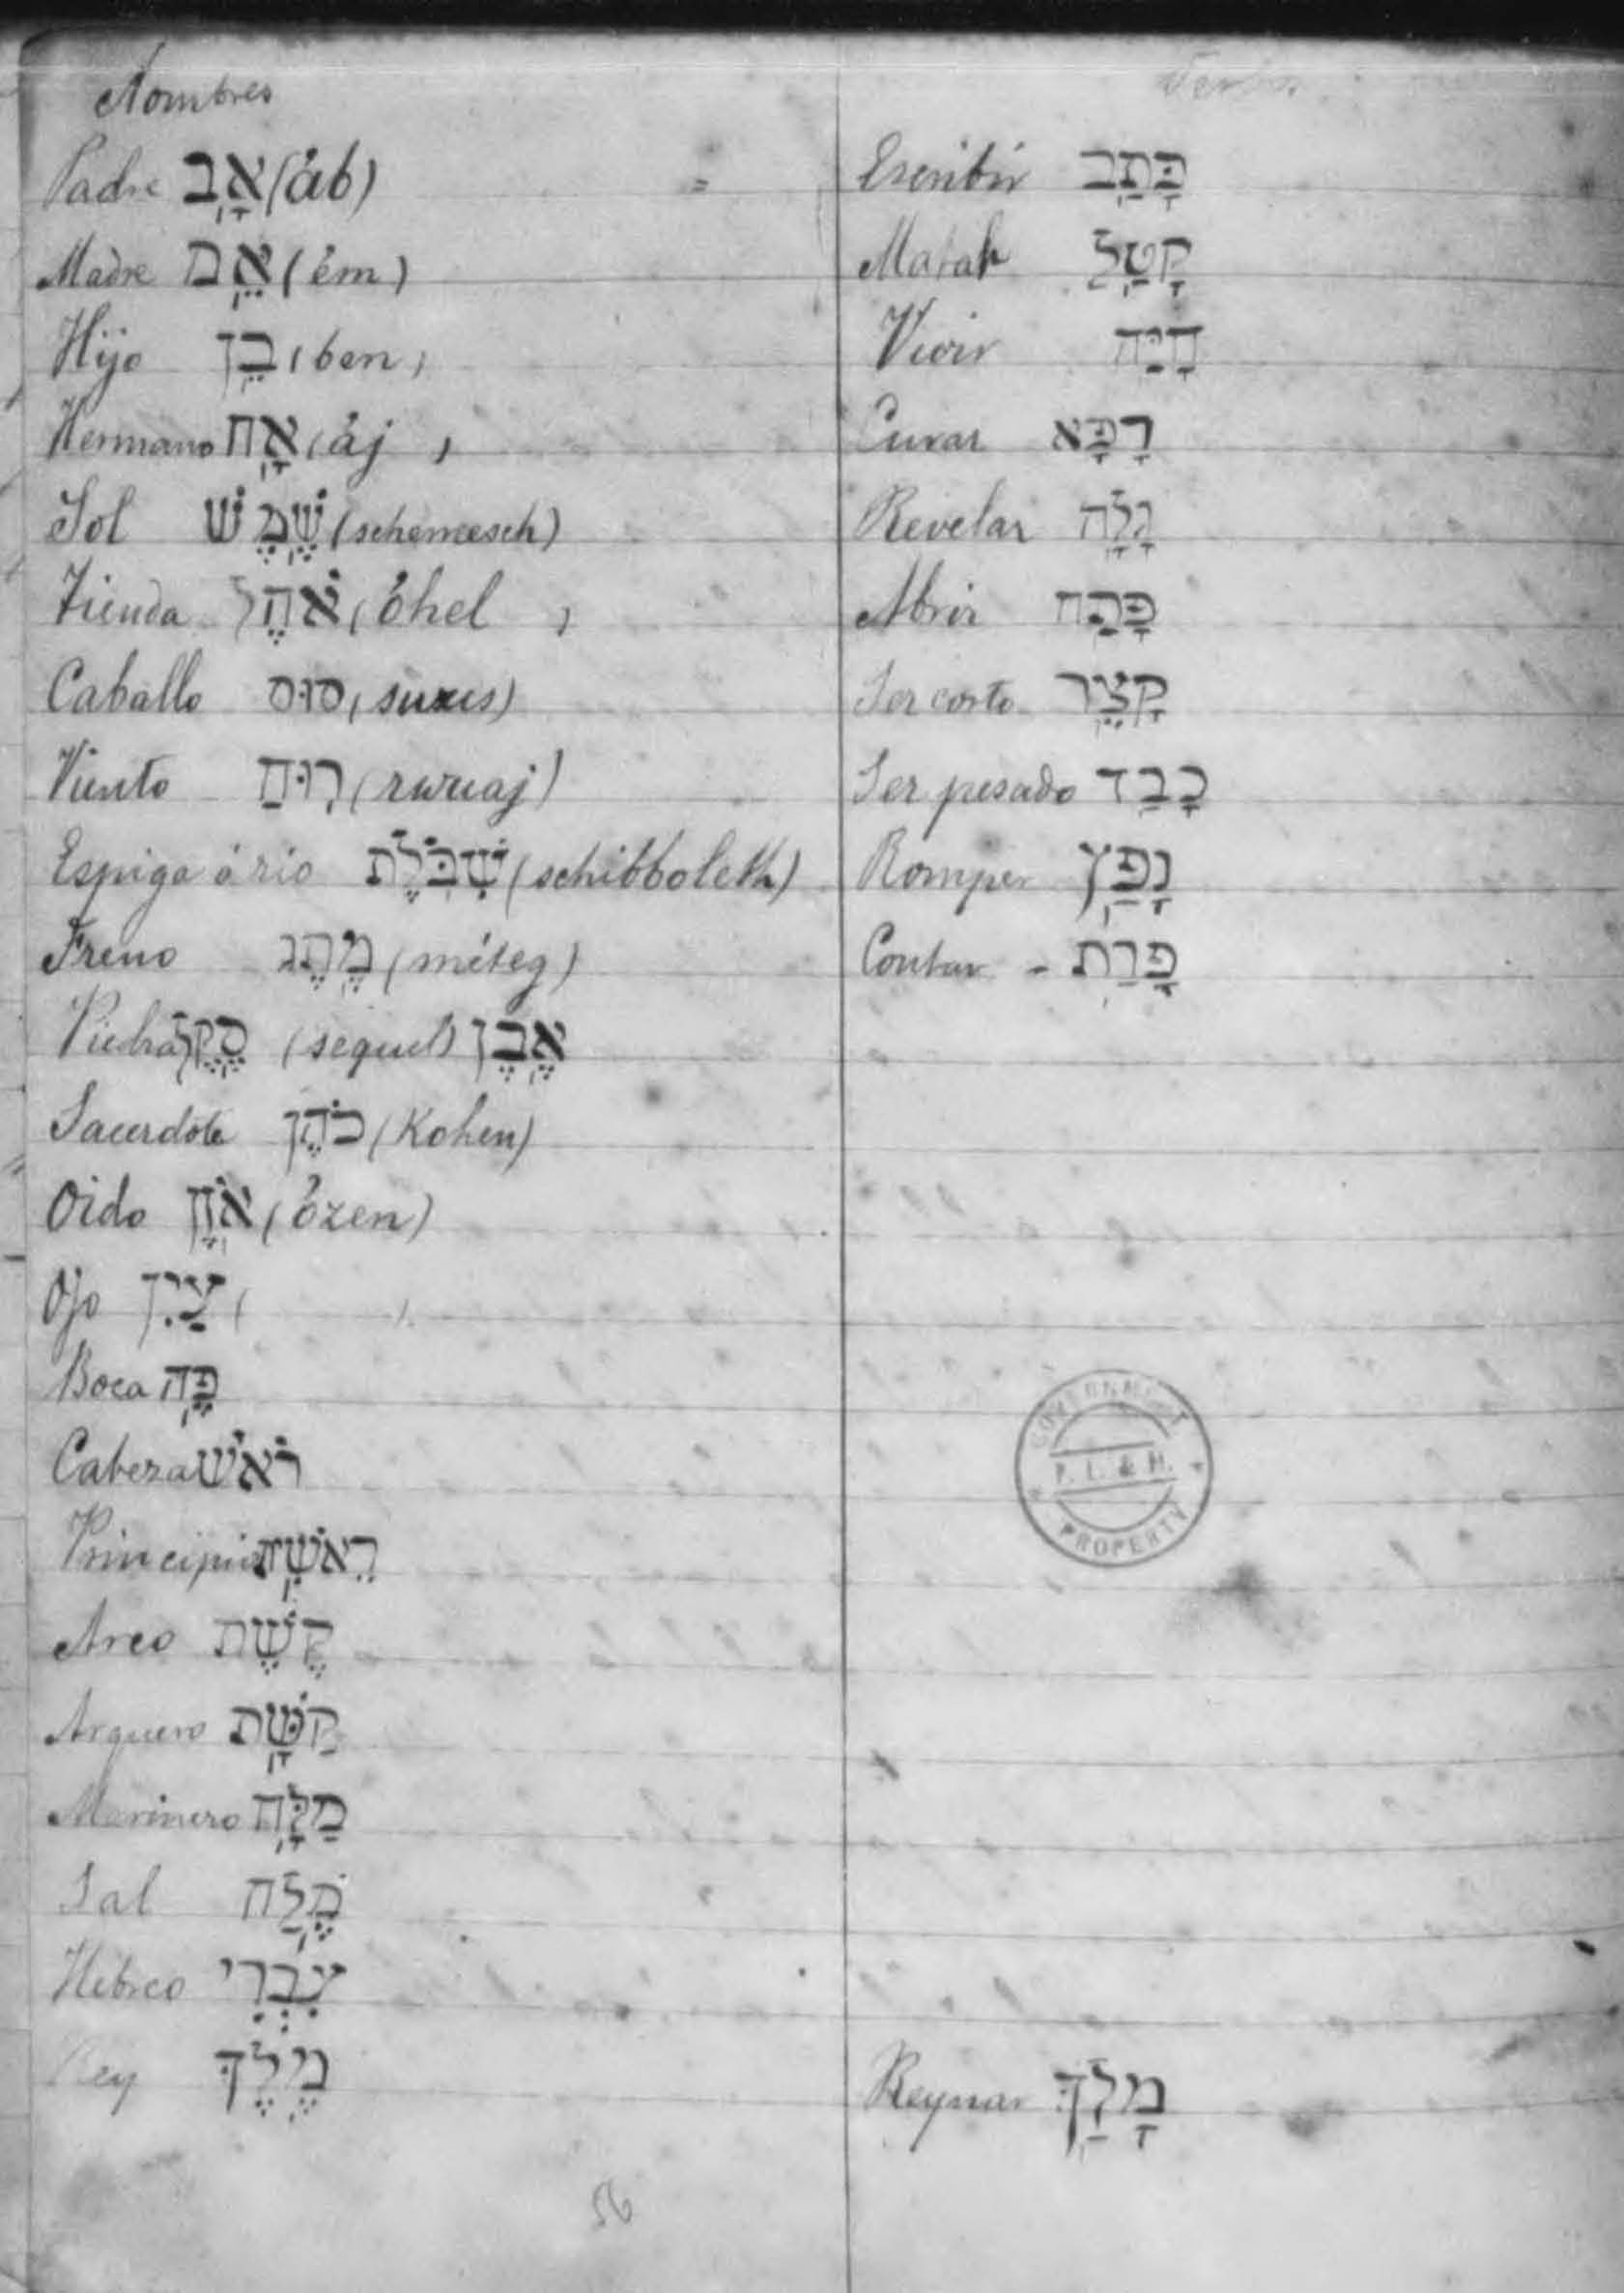 Nombres
Padre אָב (áb)
Madre אֵם (ém)
Hijo בֵן (ben)
Hermano אָח (áj)
Sol שֶׁמֶשׁ (schemesch)
Tienda אֹהֶל (óhel)
Caballo סוּס (suus)
Viento רוּחַ (rwuaj)
Espiga ó rio שִׁבֹּלֶת (schibboleth)
Freno מֶתֶג (méteg)
Piedra סֶקֶל (sequel) אֶבֶן
Sacerdote כֹהֵן (Kohen)
Oido אֹזֶן (ózen)
Ojo עַיִן ( )
Boca פֶּה
Cabeza רֹאשׁ
Principio רֵאשִׁת
Arco קֶשֶׁת
Arquero קַשָּׁת
Marinero מַלָּח
Sal מֶלַח
Hebreo עִבְרִי
Rey מֶלֶךְ
Escribir כָּתַב
Matar קָטַל
Vivir חָיַה
Curar רָפָּא
Revelar גָלָה
Abrir פָּתַח
Ser corto קָצֵר
Ser pesado כָבַד
Romper נָפַּץ
Contar - פָּרַת
Reynar מָלַךְ
GOVERNMENT
P. L. & M.
PROPERTY
56